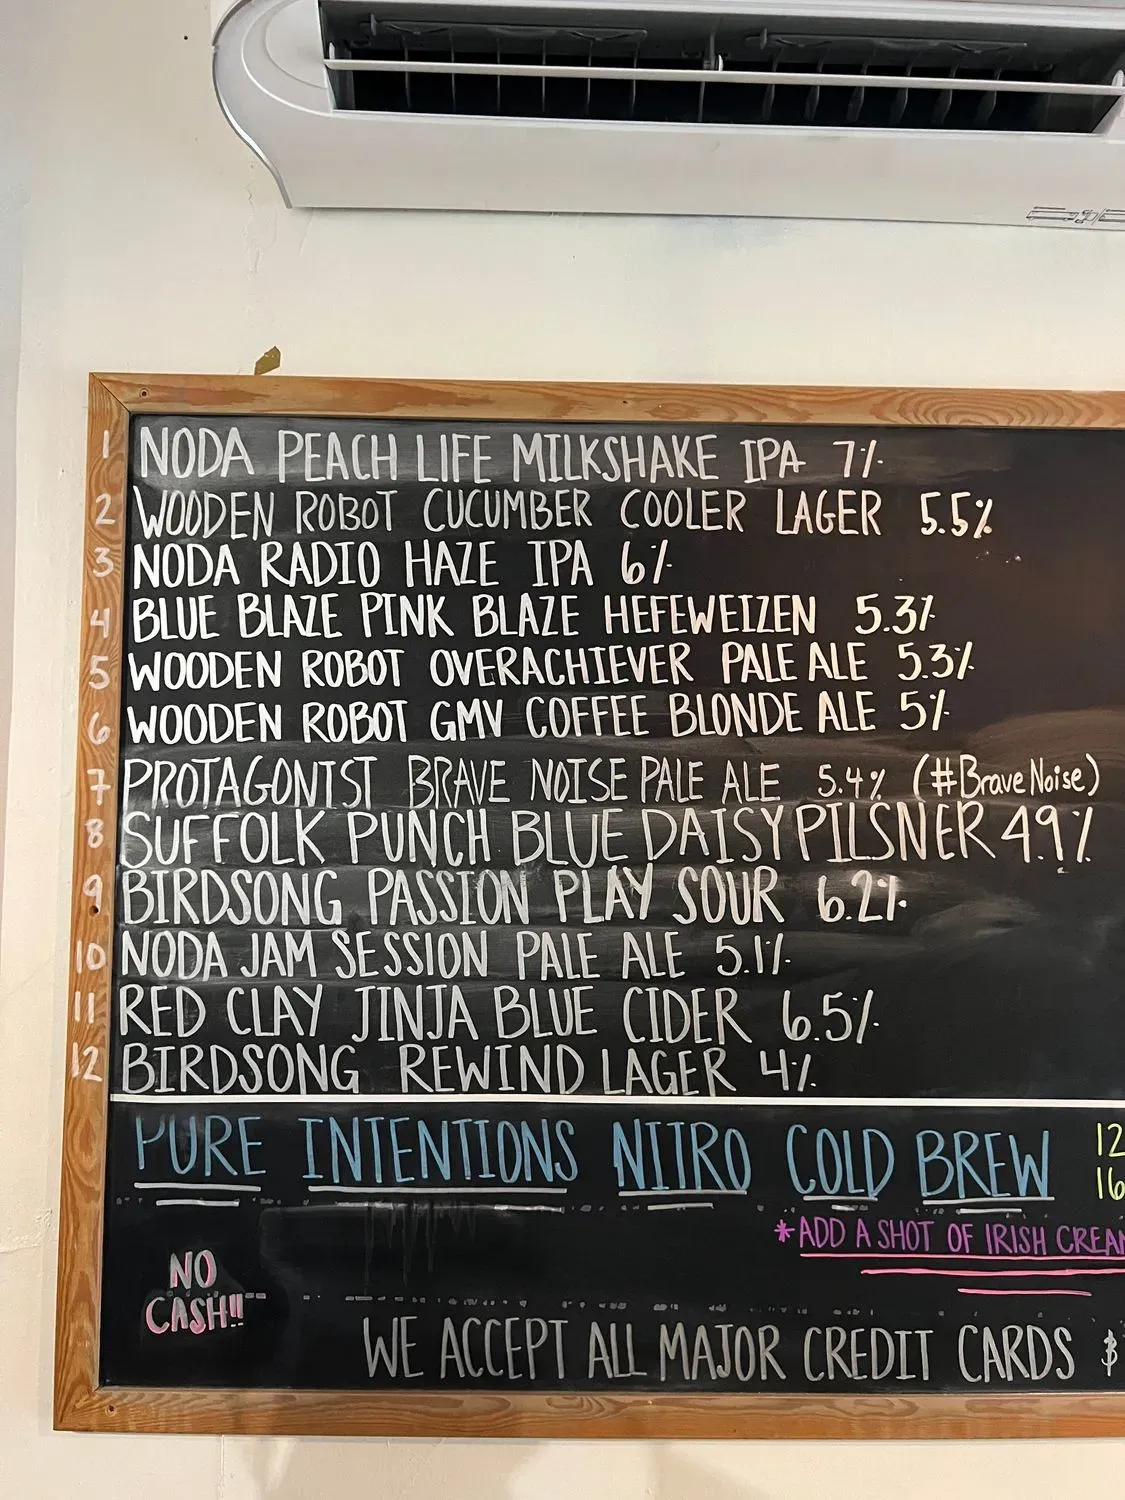 1 NODA PEACH LIFE MILKSHAKE IPA 7%
2 WOODEN ROBOT CUCUMBER COOLER LAGER 5.5%
3 NODA RADIO HAZE IPA 6%
4 BLUE BLAZE PINK BLAZE HEFEWEIZEN 5.3%
5 WOODEN ROBOT OVERACHIEVER PALE ALE 5.3%
6 WOODEN ROBOT GMV COFFEE BLONDE ALE 5%
7 PROTAGONIST BRAVE NOISE PALE ALE 5.4% (#BraveNoise)
8 SUFFOLK PUNCH BLUE DAISY PILSNER 4.9%
9 BIRDSONG PASSION PLAY SOUR 6.2%
10 NODA JAM SESSION PALE ALE 5.1%
11 RED CLAY JINJA BLUE CIDER 6.5%
12 BIRDSONG REWIND LAGER 4%
PURE INTENTIONS NITRO COLD BREW 12
16
*ADD A SHOT OF IRISH CREAM
NO
CASH!!
WE ACCEPT ALL MAJOR CREDIT CARDS